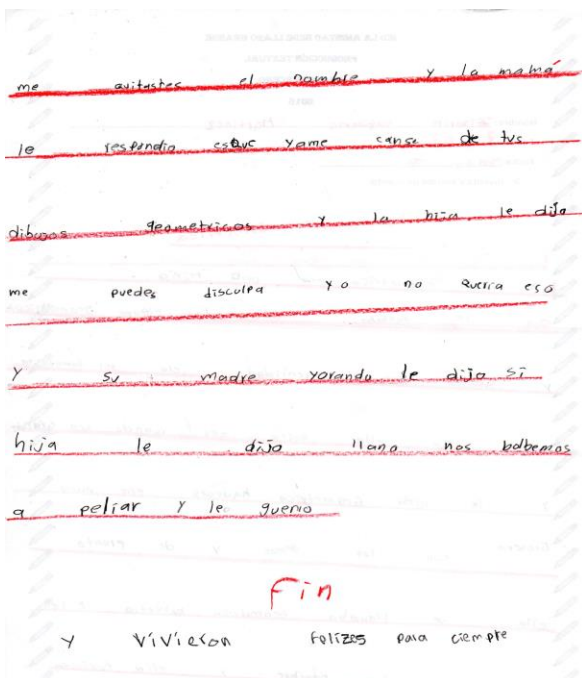 me quitastes el nombre y la mamá
le respondio esque yame canse de tus
dibujos geometricos y la hija le dijo
me puedes disculpa yo no querria eso
y su madre yorando le dijo si
hija le dijo llano nos bolbemos
a peliar y le guenio
Fin
y vivieron felizes para ciempre